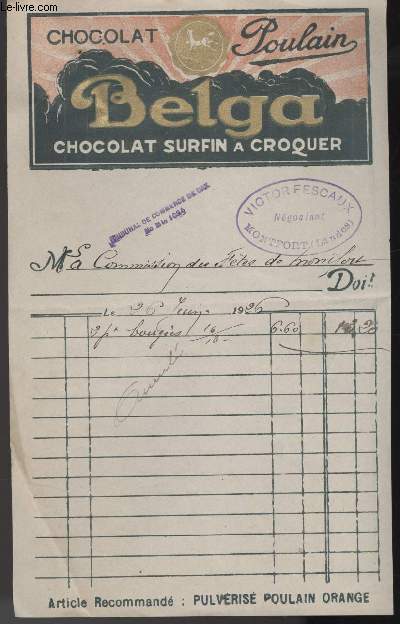 www.le-livre.com
CHOCOLAT Poulain
Belga
CHOCOLAT SURFIN A CROQUER
TRIBUNAL DE COMMERCE DE DAX
VICTOR FESCAUX
Négociant
MONTFORT (Landes)
M La Commission des Fêtes de Montfort
Doit
Le 26 Juin 1926
2 p. bougies 6.60
Article Recommandé : PULVÉRISÉ POULAIN ORANGE